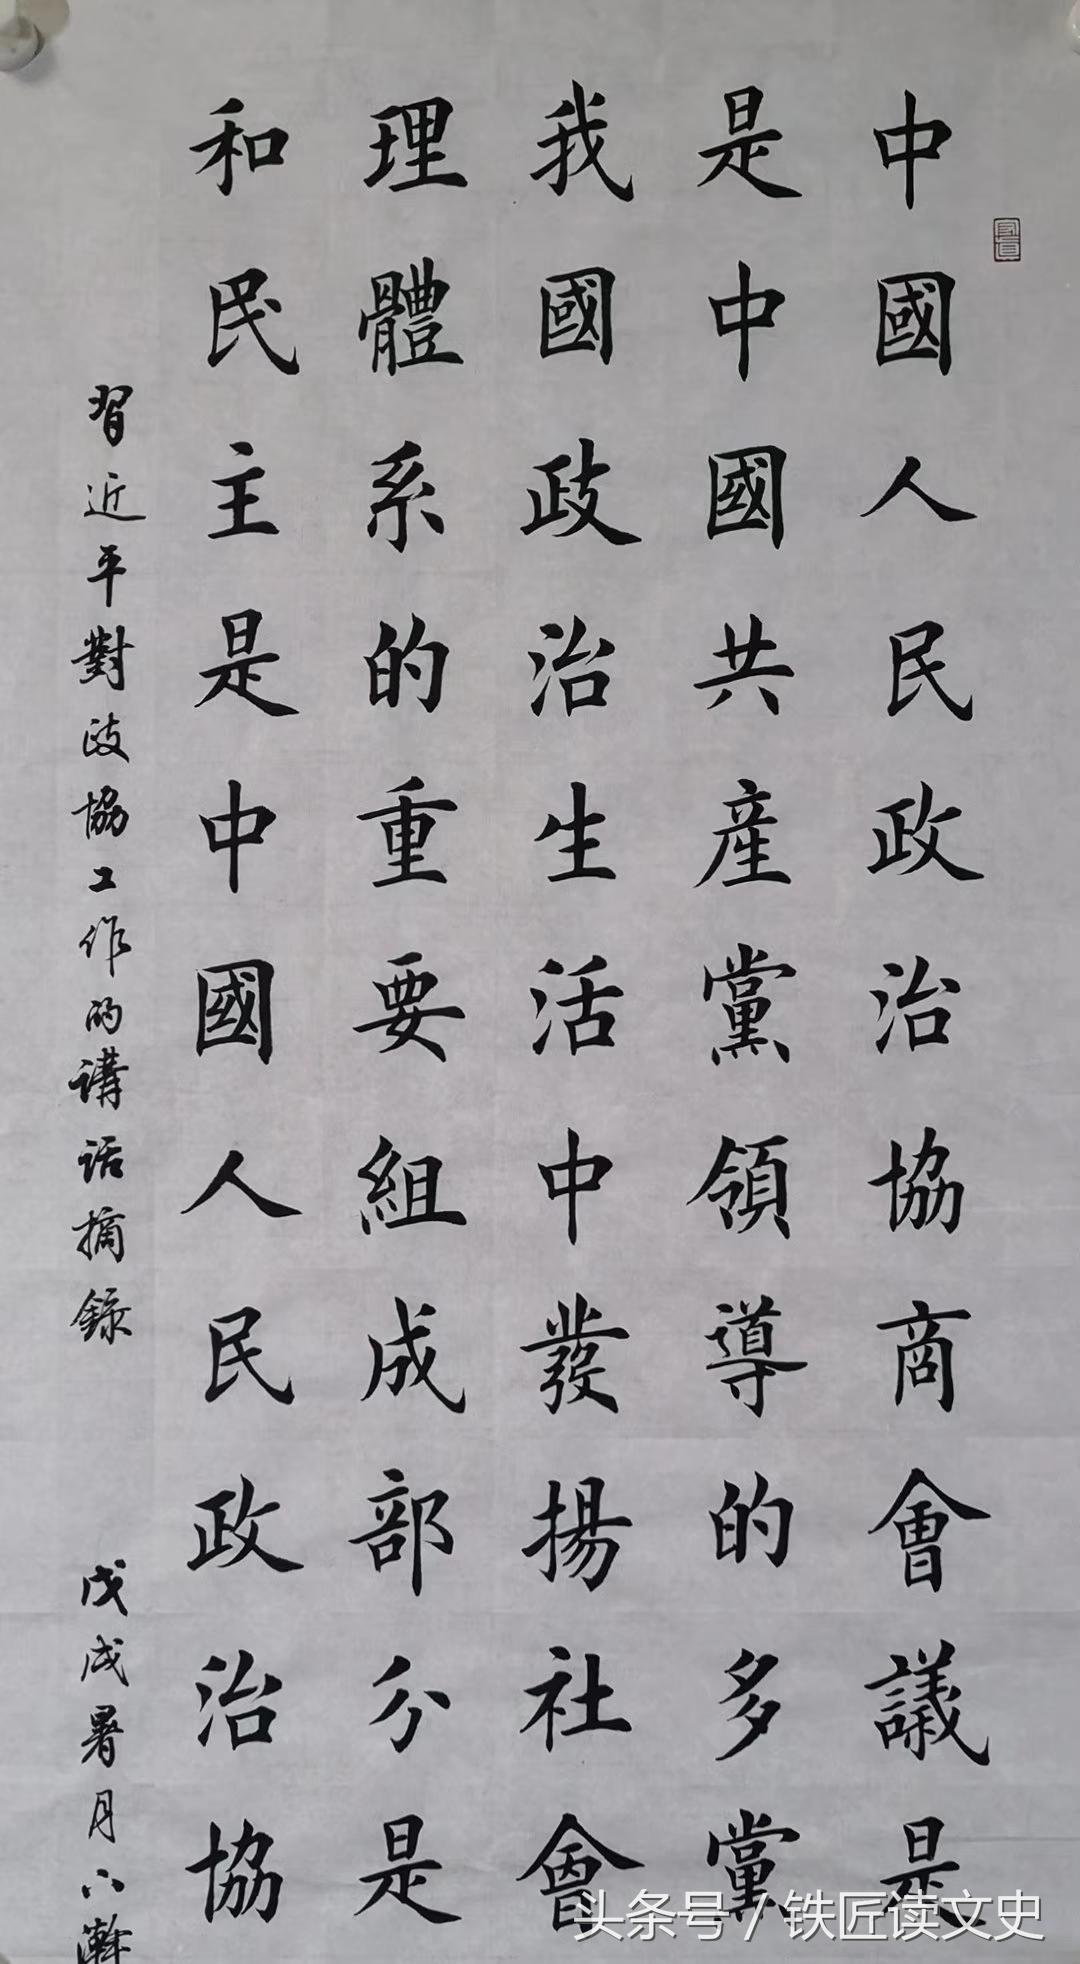 中國人民政治協商會議是
是中國共產黨領導的多黨
我國政治生活中發揚社會
理體系的重要組成部分是
和民主是中國人民政治協
習近平對政協工作的講話摘錄
戊戌暑月
头条号 / 铁匠读文史